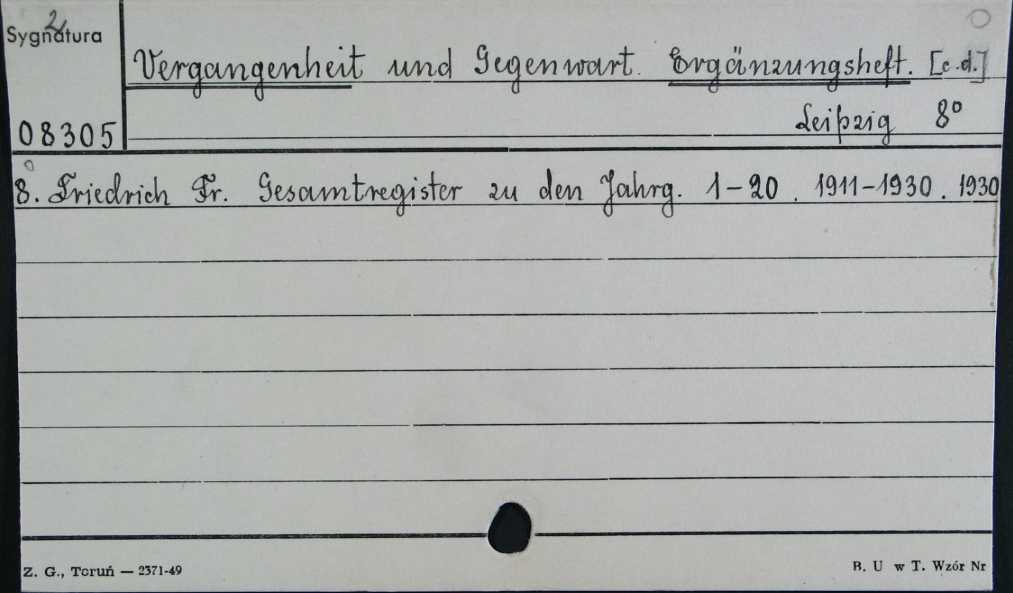 2
Sygnatura
Vergangenheit und Gegenwart. Ergänzungsheft. [c.d.]
08305
Leipzig 8°
8. Friedrich Fr. Gesamtregister zu den Jahrg. 1-20. 1911-1930. 1930
Z. G., Toruń — 2371-49
B. U w T. Wzór Nr